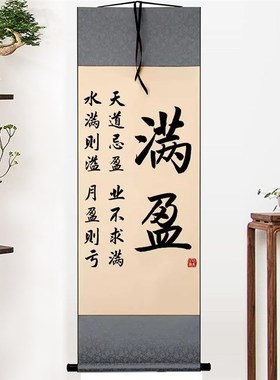 满盈
天道忌盈 业不求满
水满则溢 月盈则亏